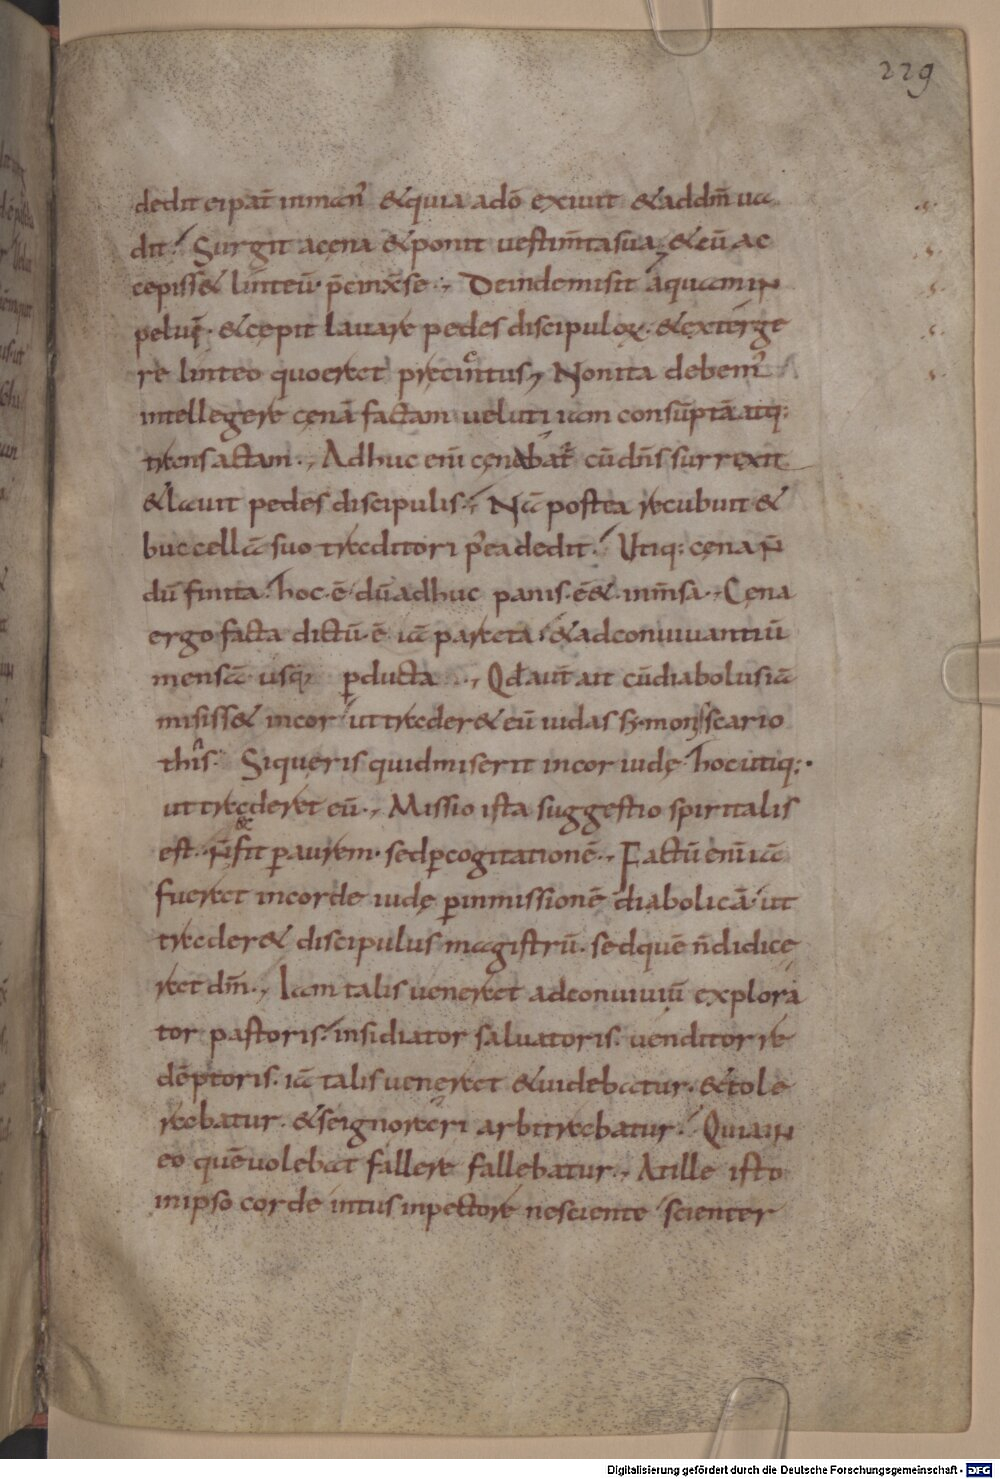 229
dedit ei pat̄ in man᾽ & quia ad̄o exiuit & ad dm̄ ua
dit. Surgit a cena & ponit uestim̄ta sua, & cū ac
cepiss& linteū p̄cinx̄ se. Deinde misit aquam in
peluī. & cepit lauare pedes discipuloꝝ. & exterge
re linteo quo erat precinctus, Non ita debem᾽
intellegere cęnā factam ueluti iam consūptā atq:
transactam., Adhuc enī cęnabat᾽ cū dn̄s surrexit
& lauit pedes discipulis. Nā postea recubuit &
buccellā suo traditori p᾽ea dedit. Vtiq: cęna n̄
dū finita. hoc. ē dū adhuc panis. ē& in m̄sa., Cęna
ergo facta dictū. ē iā parata. & ad conuiuantiū
mensā usq; ꝑducta ., Qd̄ aut̄ ait cū diabolus iā
misiss& in cor ut trader& eū iudas symonis scario
this. Si queris quid miserit in cor iudę. hoc utiq:.
ut traderet eū., Missio ista suggestio spiritalis
est. n̄ fit ꝑ aurem. sed ꝑ cogitationē., Factū enī iā
fuerat in corde iudę ꝑ inmissionē diabolicā. ut
trader& discipulus magistrū. sed quē n̄ didice
rat dm̄., Iam talis uenerat ad conuiuiū explora
tor pastoris. insidiator saluatoris. uenditor re
dēptoris. iā talis uenerat & uidebatur. & tole
rabatur. & se ignorari arbitrabatur. Quia in
eo quē uolebat fallere fallebatur., At ille isto
in ipso corde intus inpectore nesciente scienter
Digitalisierung gefördert durch die Deutsche Forschungsgemeinschaft - DFG